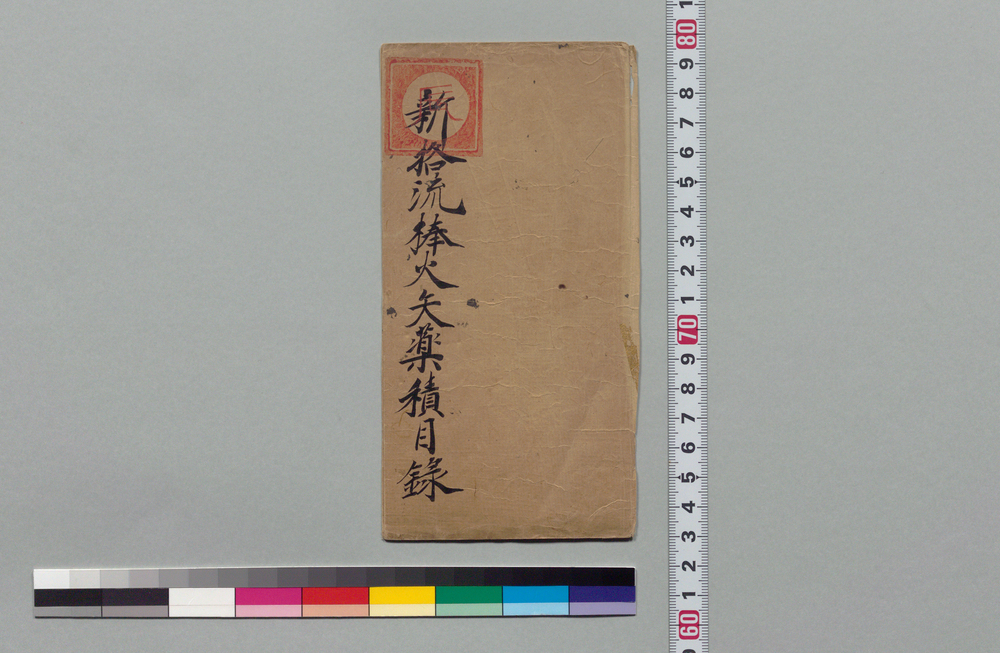 新格流捧火矢薬積目録
1
80
9
8
7
6
5
4
3
2
1
70
9
8
7
6
5
4
3
2
1
60